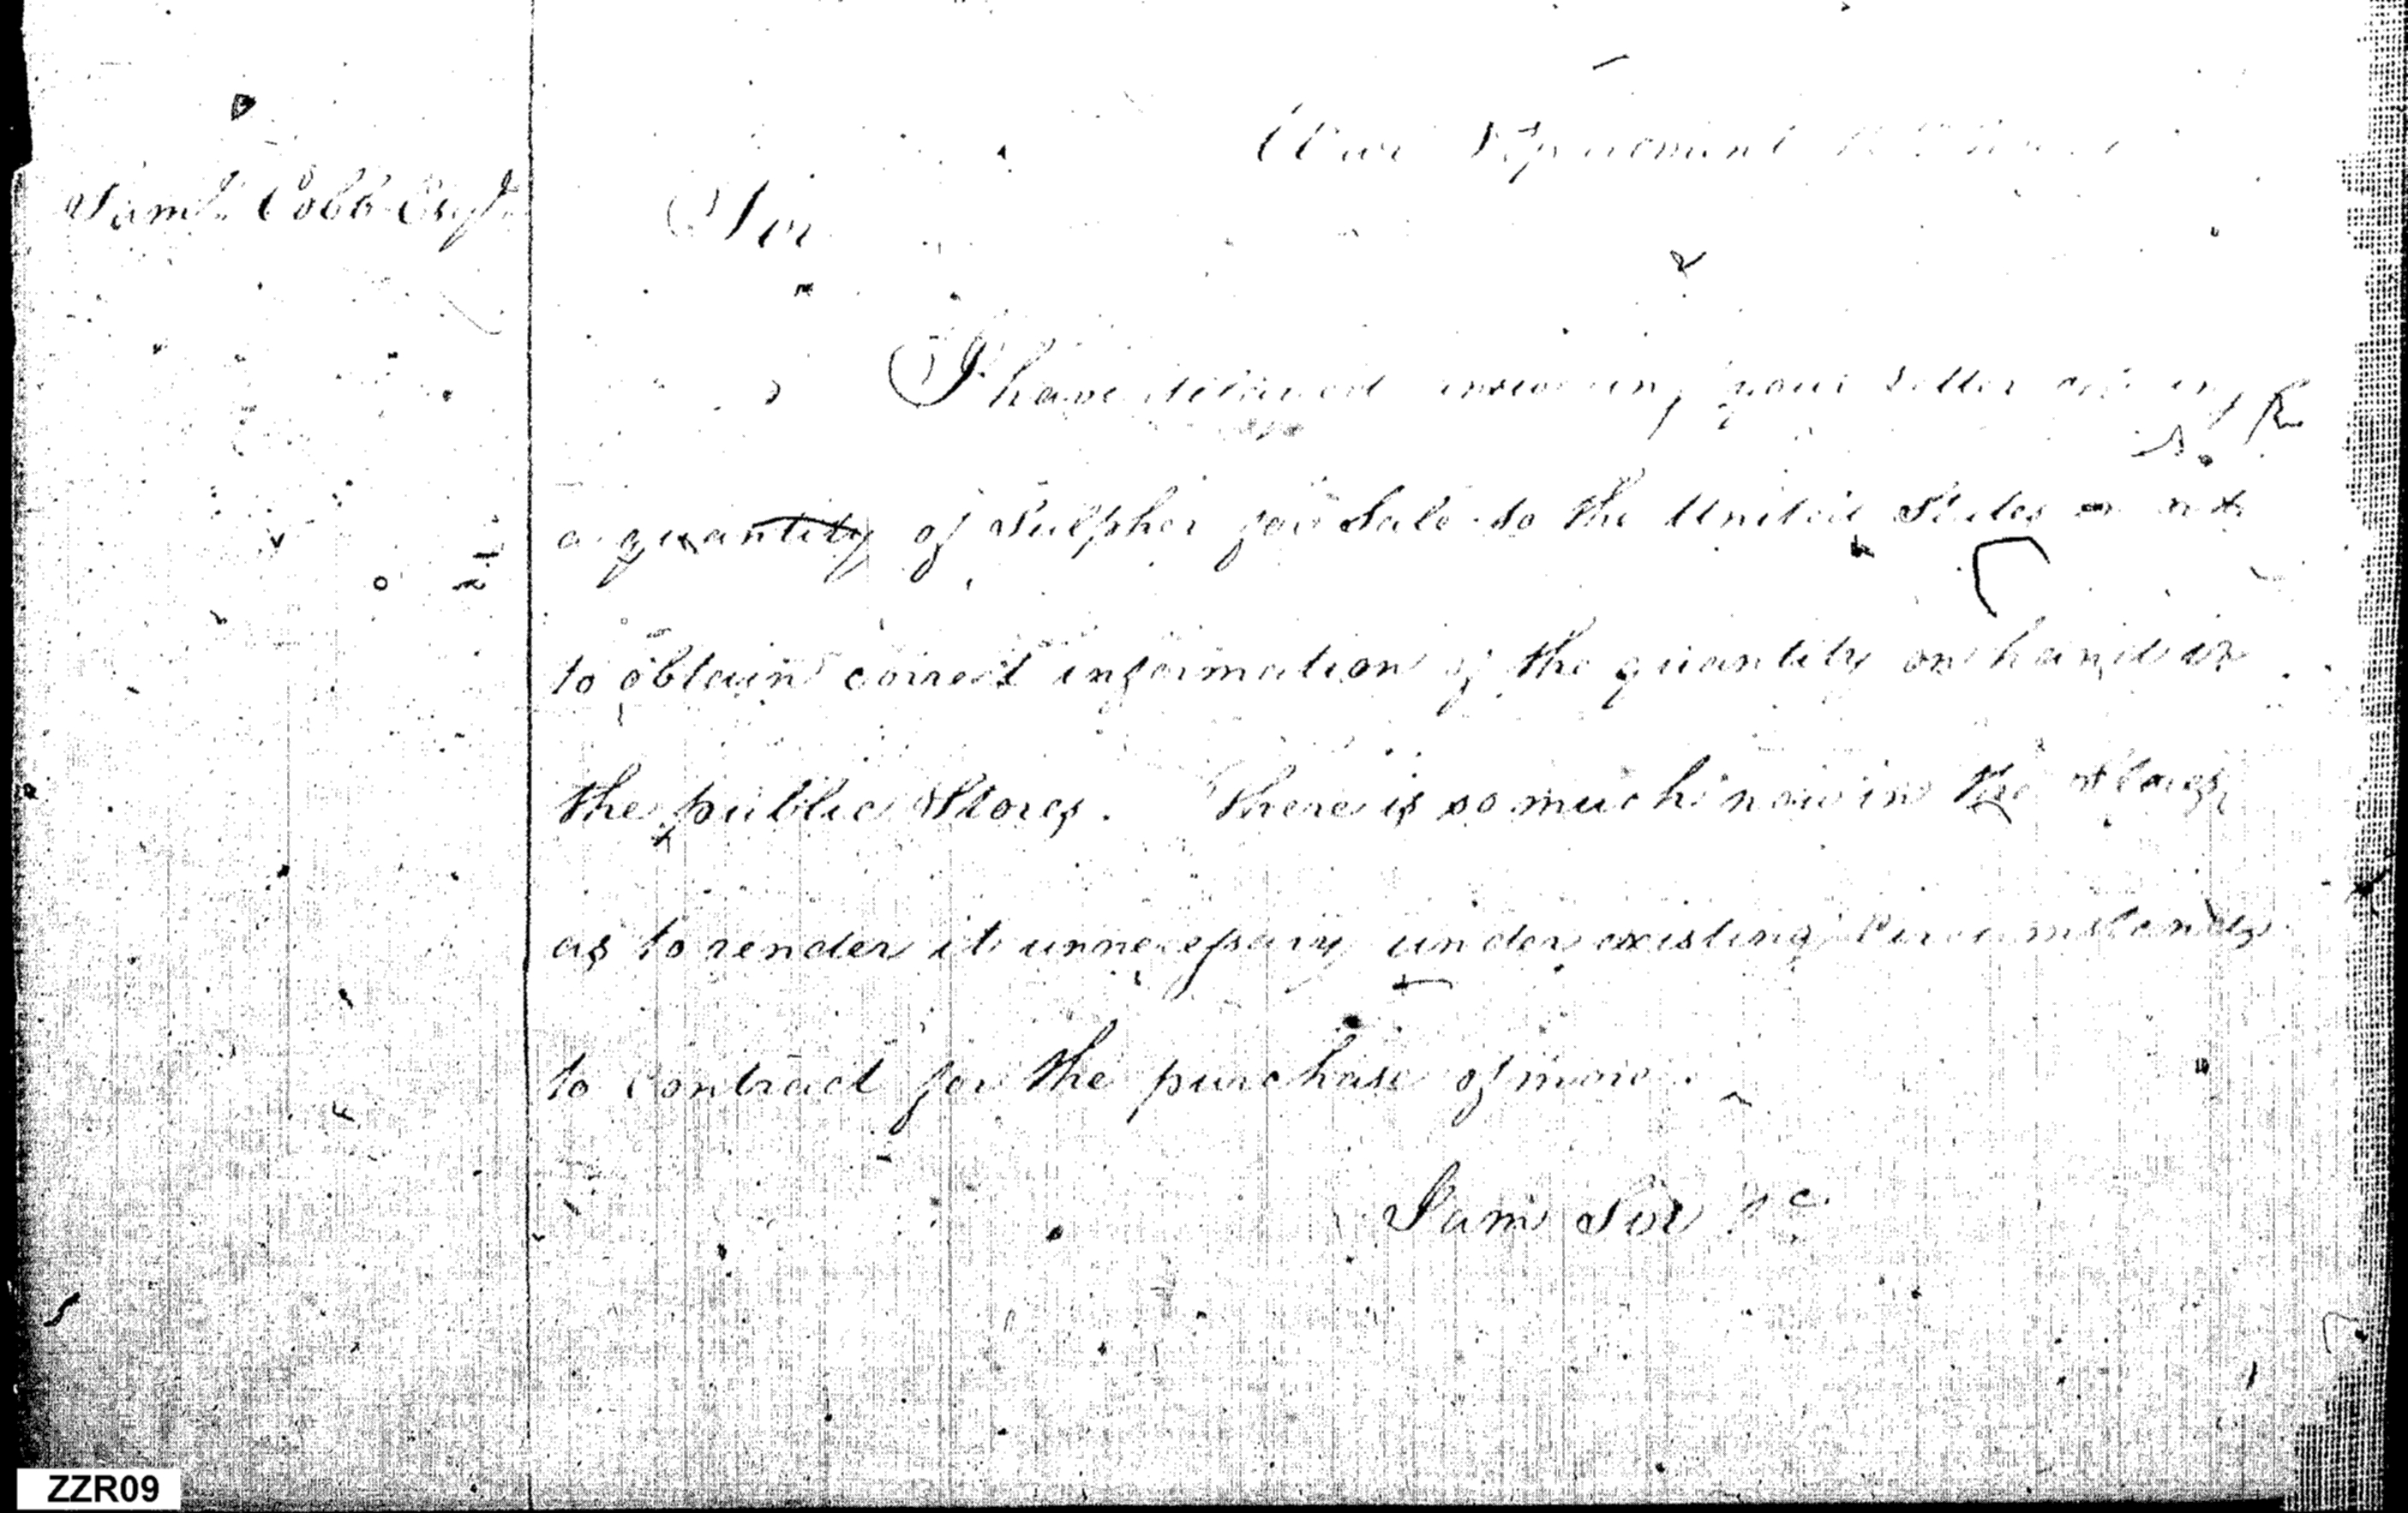 War Department
Saml. Cobb Esqr.
Sir
I have delayed answering your letter offering
a quantity of Sulpher for Sale to the United States
to obtain correct information of the quantity on hand in
the public Stores. There is so much now in the Stores
as to render it unnecessary under existing Circumstances
to contract for the purchase of more.
I am Sir &c
ZZR09